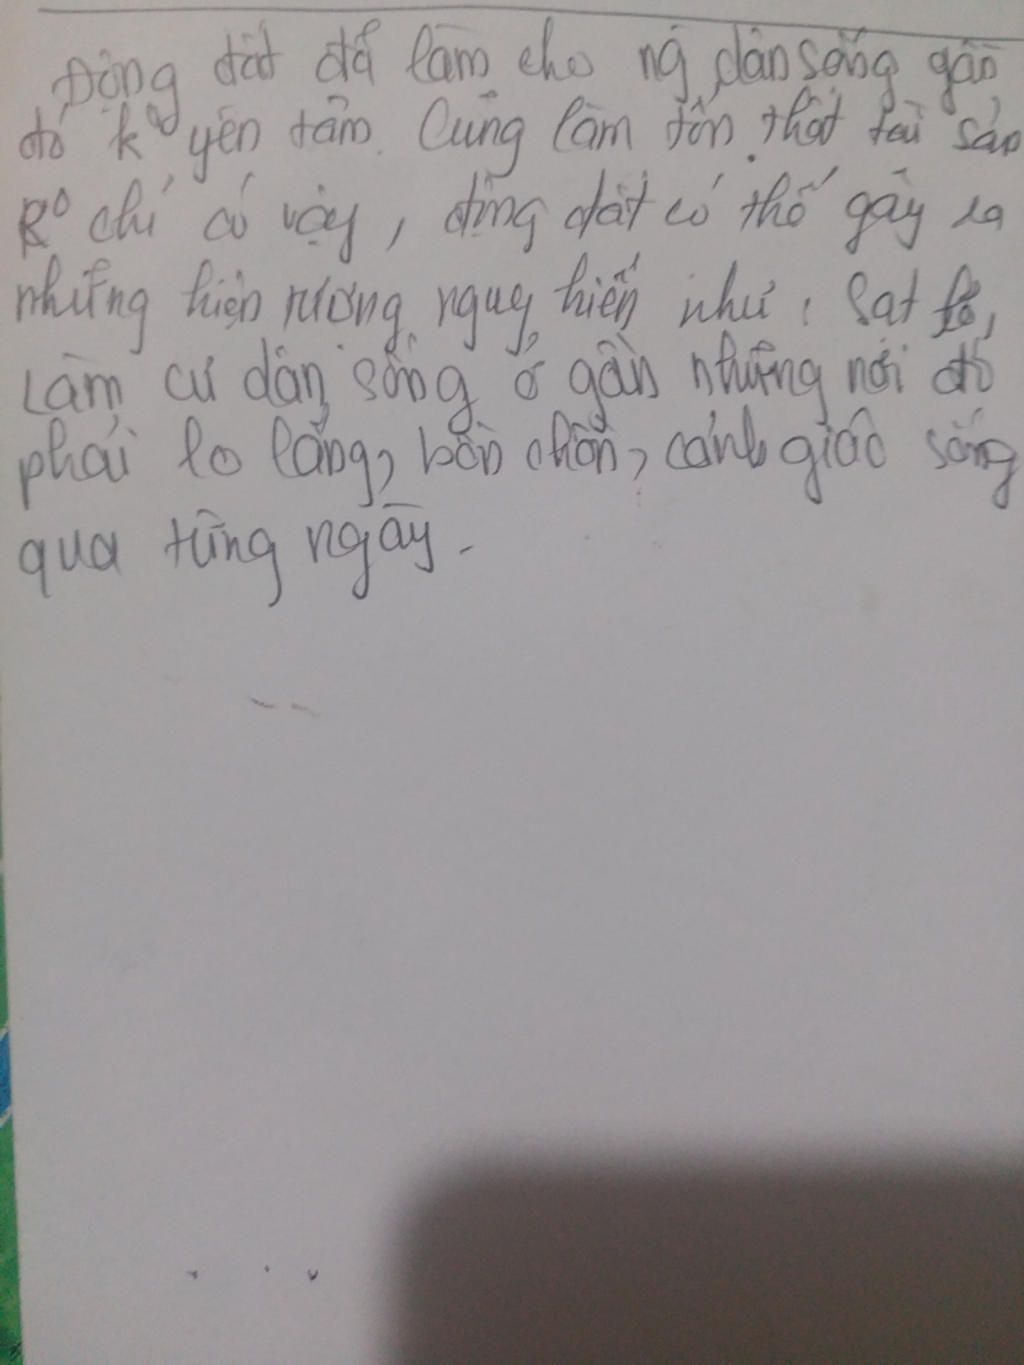 Động đất đã làm cho ng dân sống gần
đó k⁰ yên tâm. Cũng làm tổn thất tài sản
k⁰ chỉ có vậy, động đất có thể gây ra
những hiện tượng nguy hiểm như: Sạt lở,
Làm cư dân sống ở gần những nơi đó
phải lo lắng, bồn chồn, cảnh giác sống
qua từng ngày.